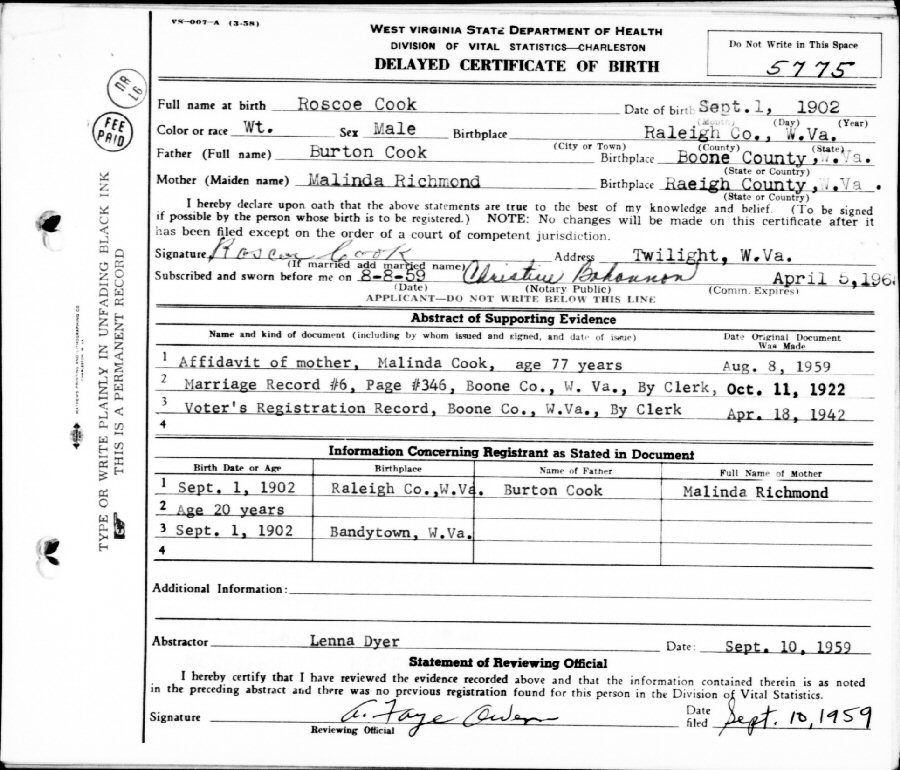 VS-007-A (3-58)
WEST VIRGINIA STATE DEPARTMENT OF HEALTH
DIVISION OF VITAL STATISTICS—CHARLESTON
DELAYED CERTIFICATE OF BIRTH
Do Not Write in This Space
5775
DR 16
FEE PAID
TYPE OR WRITE PLAINLY IN UNFADING BLACK INK
THIS IS A PERMANENT RECORD
Full name at birth Roscoe Cook Date of birth Sept. 1, 1902
(Month) (Day) (Year)
Color or race Wt. Sex Male Birthplace Raleigh Co., W.Va.
(City or Town) (County) (State)
Father (Full name) Burton Cook Birthplace Boone County, W.Va.
(State or Country)
Mother (Maiden name) Malinda Richmond Birthplace Raeigh County, W.Va.
(State or Country)
I hereby declare upon oath that the above statements are true to the best of my knowledge and belief. (To be signed
if possible by the person whose birth is to be registered.) NOTE: No changes will be made on this certificate after it
has been filed except on the order of a court of competent jurisdiction.
Signature Roscoe Cook Address Twilight, W.Va.
(If married add married name)
Subscribed and sworn before me on 8-8-59 Christine Bohannon April 5, 196
(Date) (Notary Public) (Comm. Expires)
APPLICANT—DO NOT WRITE BELOW THIS LINE
Abstract of Supporting Evidence
Name and kind of document (including by whom issued and signed, and date of issue) Date Original Document
Was Made
1 Affidavit of mother, Malinda Cook, age 77 years Aug. 8, 1959
2 Marriage Record #6, Page #346, Boone Co., W. Va., By Clerk, Oct. 11, 1922
3 Voter's Registration Record, Boone Co., W.Va., By Clerk Apr. 18, 1942
4
Information Concerning Registrant as Stated in Document
Birth Date or Age Birthplace Name of Father Full Name of Mother
1 Sept. 1, 1902 Raleigh Co.,W.Va. Burton Cook Malinda Richmond
2 Age 20 years
3 Sept. 1, 1902 Bandytown, W.Va.
4
Additional Information:
Abstractor Lenna Dyer Date: Sept. 10, 1959
Statement of Reviewing Official
I hereby certify that I have reviewed the evidence recorded above and that the information contained therein is as noted
in the preceding abstract and there was no previous registration found for this person in the Division of Vital Statistics.
Signature A. Faye Owen Date
filed Sept. 10, 1959
Reviewing Official